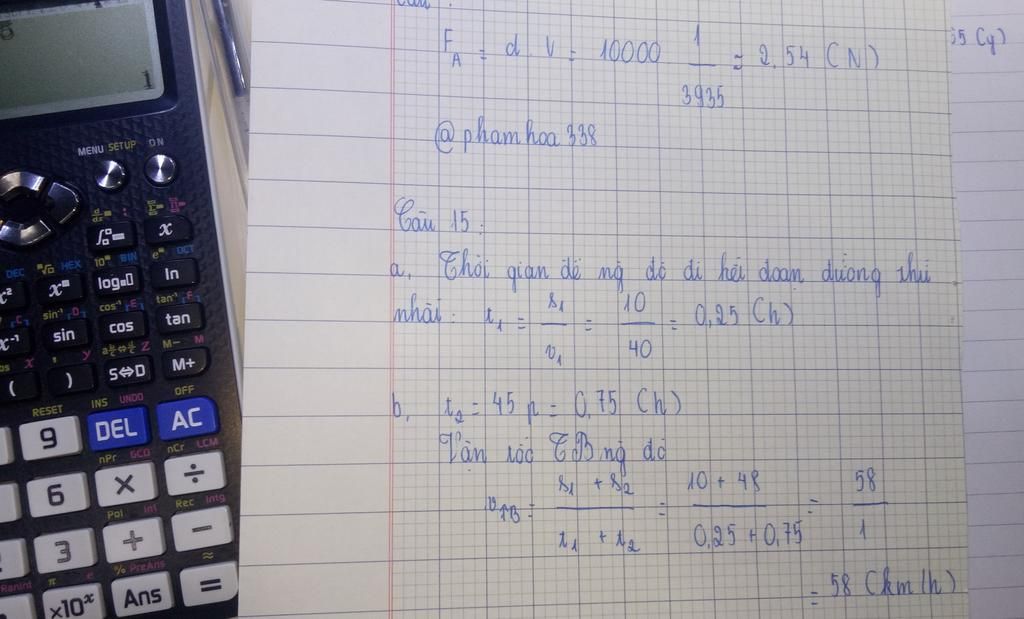 Câu :
F_A = d . V = 10000 1/3935 ≈ 2,54 (N)
35 (y)
@phamhoa338
Câu 15 :
a, Thời gian để ng đó đi hết đoạn đường thứ
nhất : t₁ = s₁/v₁ = 10/40 = 0,25 (h)
b, t₂ = 45 p = 0,75 (h)
Vận tốc TB ng đó
v_TB = (s₁ + s₂)/(t₁ + t₂) = (10 + 48)/(0,25 + 0,75) = 58/1
= 58 (km/h)
1
MENU SETUP ON
x
DEC HEX 10^■ BIN e^■ OCT
x² x^■ log■□ ln
sin⁻¹ D cos⁻¹ E tan⁻¹ F
x⁻¹ sin cos tan
x y Z M− M
( ) S⇔D M+
RESET INS UNDO OFF
9 DEL AC
nPr GCD nCr LCM
6 × ÷
Pol Int Rec Intg
3 + −
RanInt π e % PreAns ≈
×10ˣ Ans =